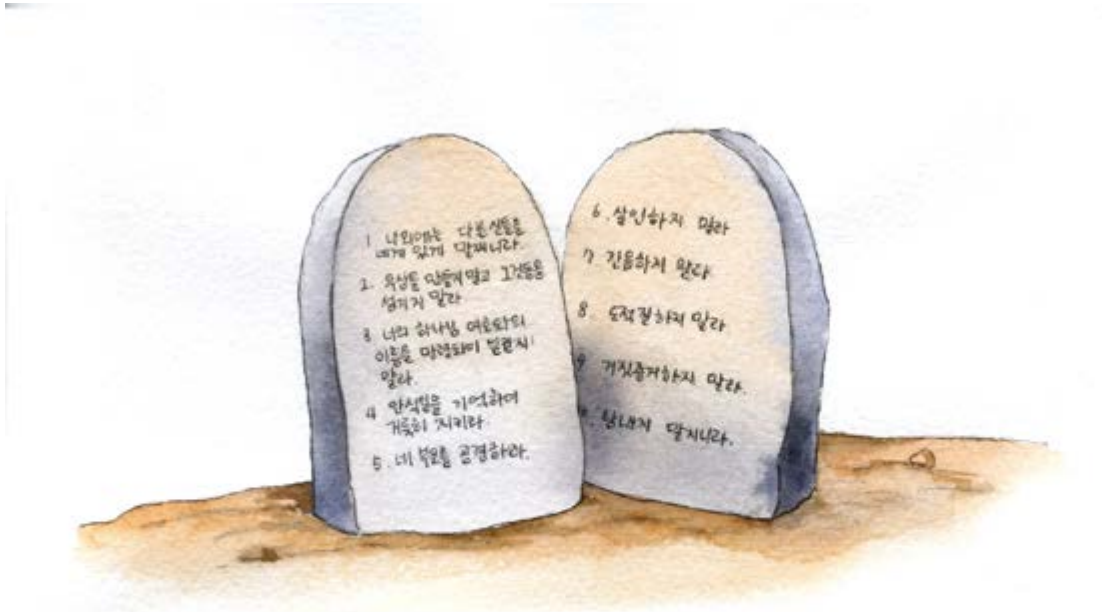 1 나외에는 다른신들을
네게 있게 말찌니라.
2. 우상을 만들지말고 그것들을
섬기지 말라
3 너의 하나님 여호와의
이름을 망령되이 일컫지
말라.
4 안식일을 기억하여
거룩히 지키라.
5. 네 부모를 공경하라.
6. 살인하지 말라
7. 간음하지 말라
8. 도적질하지 말라
9 거짓증거하지 말라.
10. 탐내지 말지니라.